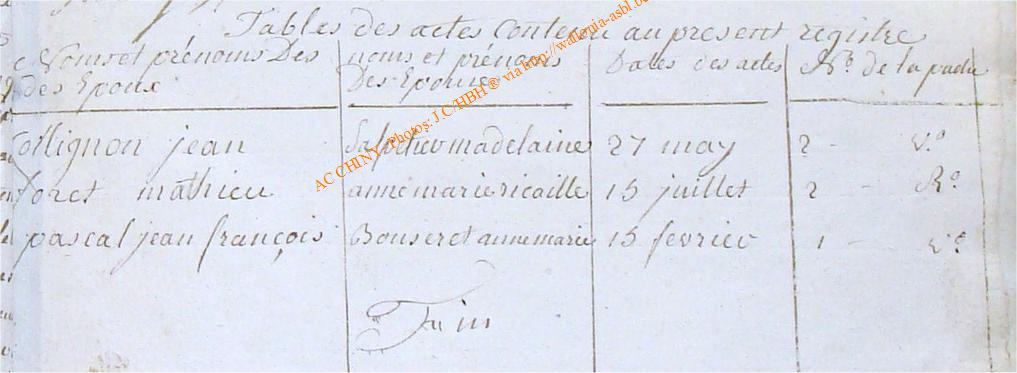 Tables des actes contenu au present registre
Noms et prénoms Des noms et prénoms Dates des actes No. de la
des Epoux Des Epouse
Collignon jean madelaine 27 may 2 - Vo
foret mathieu anne marie ricaille 15 juillet 2 - Ro
pascal jean françois Bonseret anne marie 15 fevrier 1 - Vo
Fin
AC CHINY Photos: J C /HBH® via http://wallonia-asbl.be